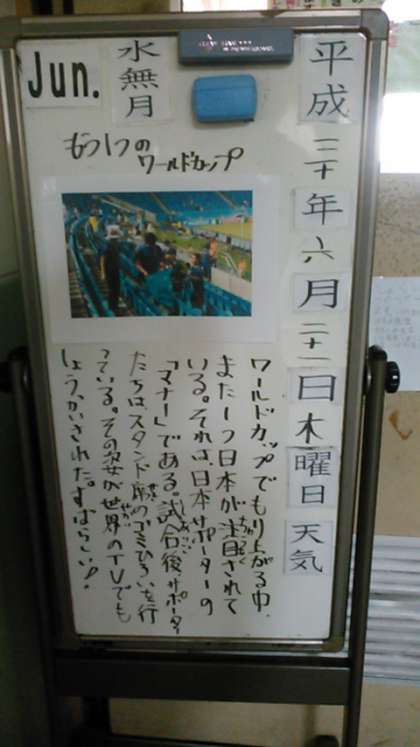 平成三十年六月二十一日木曜日天気
水無月
Jun.
もう1つの
ワールドカップ
ワールドカップでもり上がる中、
また1つ日本が注目されて
いる。それは日本サポーターの
「マナー」である。試合後サポータ
たちは、スタンド席のゴミひろいを行
っている。その姿が世界のTVでも
しょうかいされた。すばらしい!